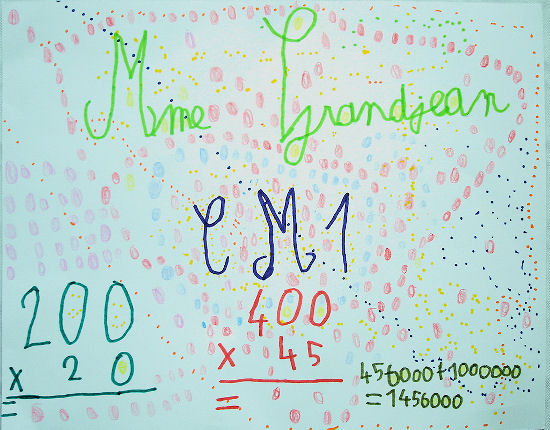 Mme Grandjean
CM1
200
x 20
=
400
x 45
=
456000+1000000
=1456000